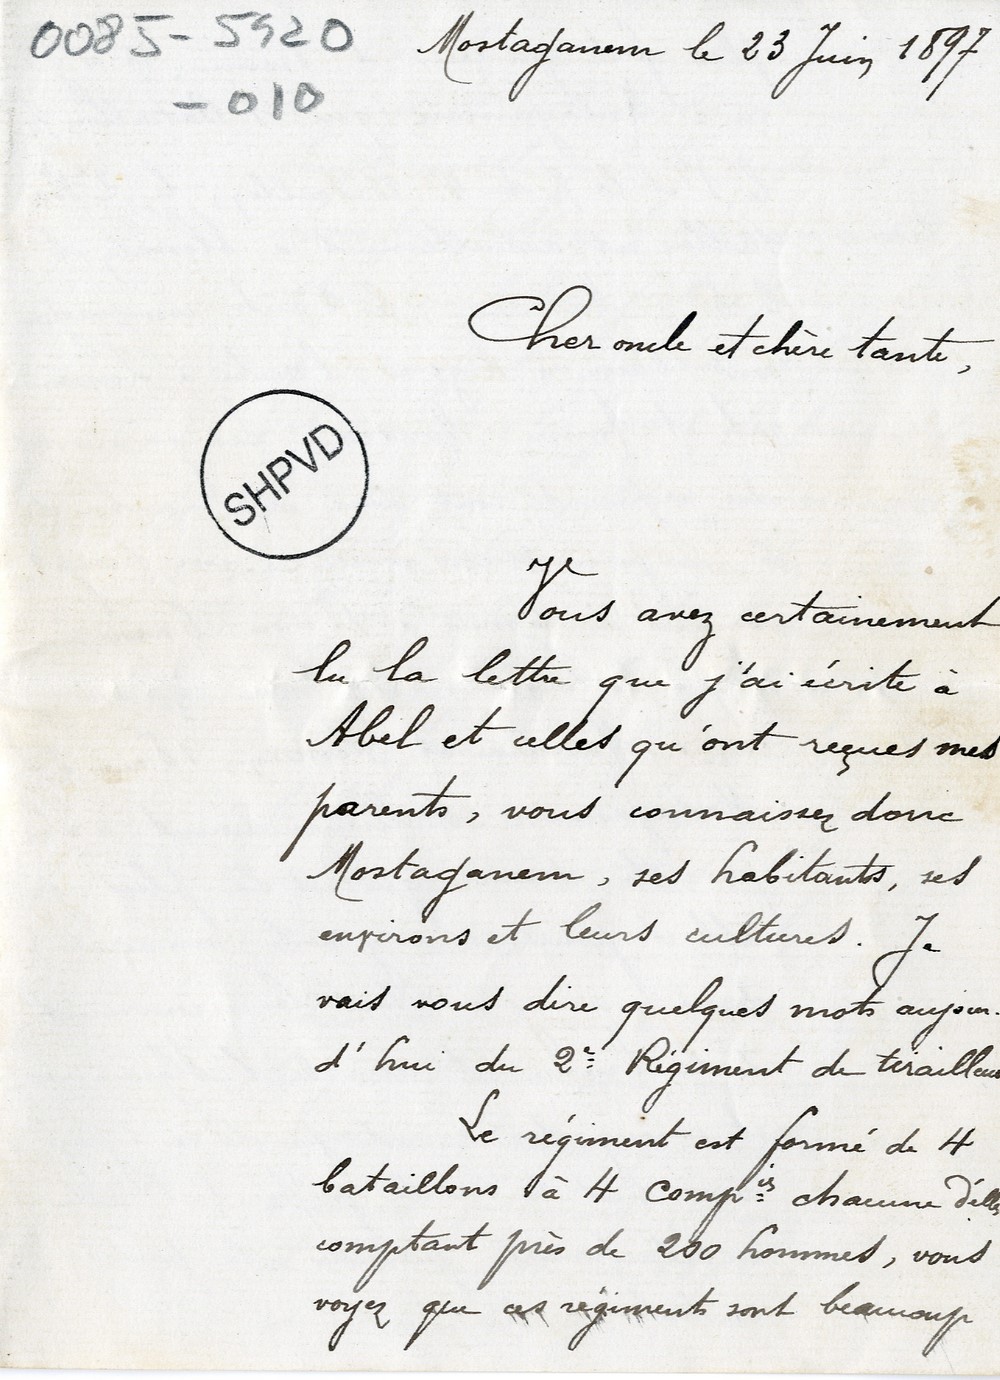 0085-5920
-010
Mostaganem le 23 Juin 1897
Cher oncle et chère tante,
SHPVD
Vous avez certainement
lu la lettre que j'ai écrite à
Abel et celles qu'ont reçues mes
parents, vous connaissez donc
Mostaganem, ses habitants, ses
environs et leurs cultures. Je
vais vous dire quelques mots aujour-
d'hui du 2e Régiment de tirailleurs
Le régiment est formé de 4
bataillons à 4 Compies chacune d'elles
comptant près de 200 hommes, vous
voyez que ces régiments sont beaucoup